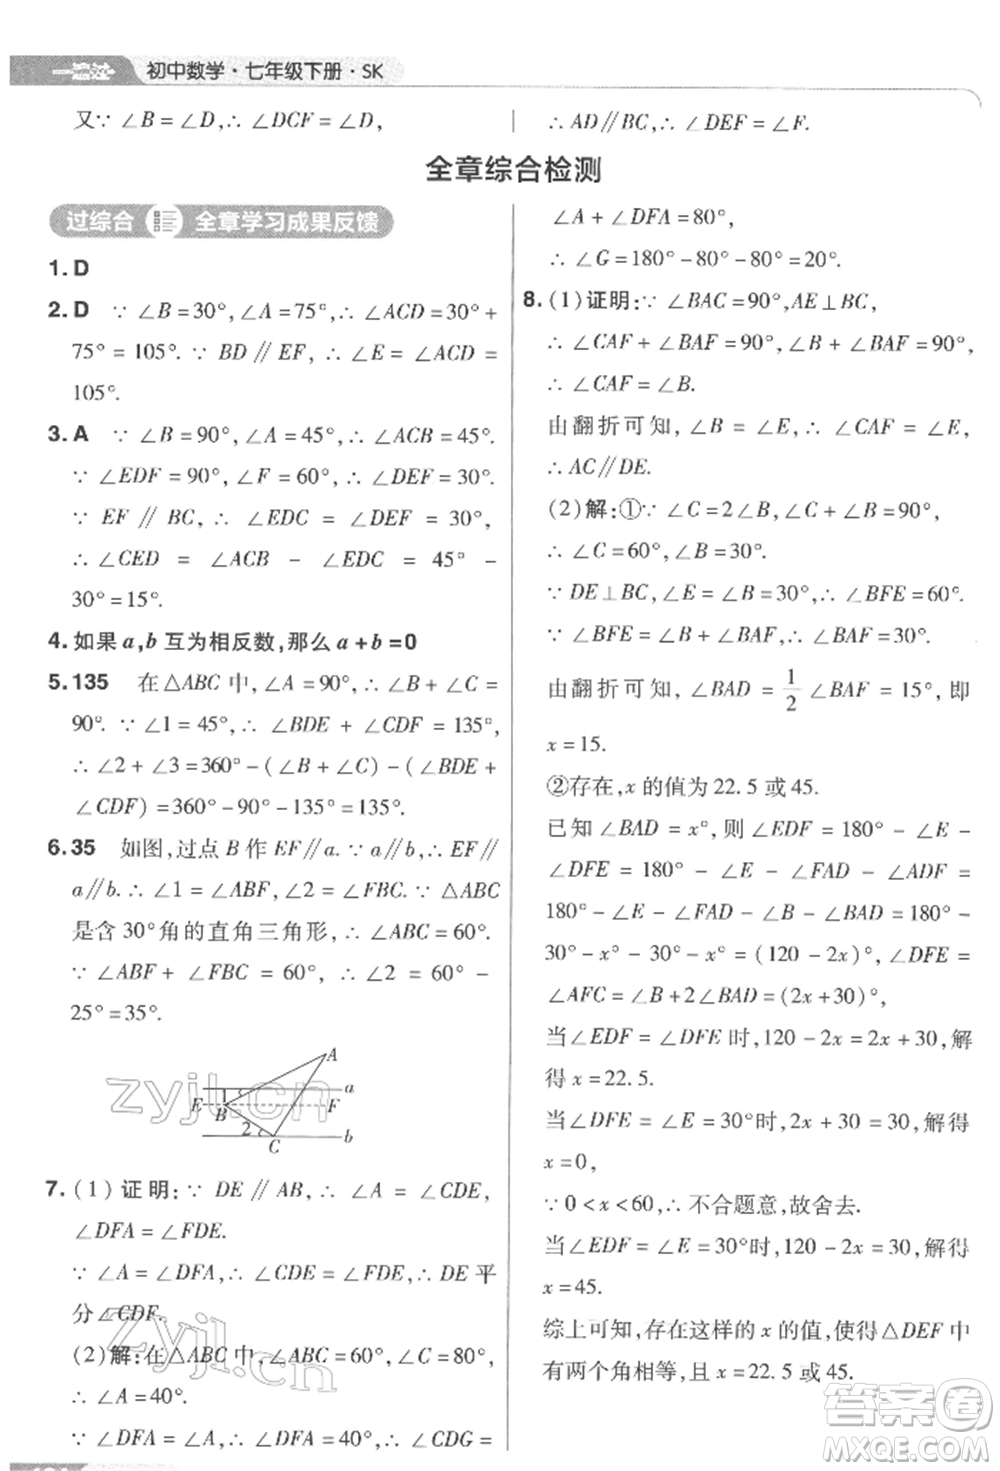 一遍过 初中数学·七年级下册·SK
又∵∠B=∠D,∴∠DCF=∠D,
∴AD∥BC,∴∠DEF=∠F.
全章综合检测
过综合 全章学习成果反馈
1. D
2. D ∵∠B=30°,∠A=75°,∴∠ACD=30°+
75°=105°. ∵BD∥EF,∴∠E=∠ACD=
105°.
3. A ∵∠B=90°,∠A=45°,∴∠ACB=45°.
∵∠EDF=90°,∠F=60°,∴∠DEF=30°.
∵EF∥BC,∴∠EDC=∠DEF=30°,
∴∠CED=∠ACB-∠EDC=45°-
30°=15°.
4. 如果a,b互为相反数,那么a+b=0
5. 135 在△ABC中,∠A=90°,∴∠B+∠C=
90°. ∵∠1=45°,∴∠BDE+∠CDF=135°,
∴∠2+∠3=360°-(∠B+∠C)-(∠BDE+
∠CDF)=360°-90°-135°=135°.
6. 35 如图,过点B作EF∥a. ∵a∥b,∴EF∥
a∥b. ∴∠1=∠ABF,∠2=∠FBC. ∵△ABC
是含30°角的直角三角形,∴∠ABC=60°.
∵∠ABF+∠FBC=60°,∴∠2=60°-
25°=35°.
A
1 a
E B F
2 C b
zyjl.cn
7. (1)证明:∵DE∥AB,∴∠A=∠CDE,
∠DFA=∠FDE.
∵∠A=∠DFA,∴∠CDE=∠FDE,∴DE平
分∠CDF.
zyjl.cn
(2)解:在△ABC中,∠ABC=60°,∠C=80°,
∴∠A=40°.
∵∠DFA=∠A,∴∠DFA=40°,∴∠CDG=
∠A+∠DFA=80°,
∴∠G=180°-80°-80°=20°.
8. (1)证明:∵∠BAC=90°,AE⊥BC,
∴∠CAF+∠BAF=90°,∠B+∠BAF=90°,
∴∠CAF=∠B.
由翻折可知,∠B=∠E,∴∠CAF=∠E,
∴AC∥DE.
(2)解:①∵∠C=2∠B,∠C+∠B=90°,
∴∠C=60°,∠B=30°.
∵DE⊥BC,∠E=∠B=30°,∴∠BFE=60°.
∵∠BFE=∠B+∠BAF,∴∠BAF=30°.
由翻折可知,∠BAD=1/2∠BAF=15°,即
x=15.
②存在,x的值为22.5或45.
已知∠BAD=x°,则∠EDF=180°-∠E-
∠DFE=180°-∠E-∠FAD-∠ADF=
180°-∠E-∠FAD-∠B-∠BAD=180°-
30°-x°-30°-x°=(120-2x)°,∠DFE=
∠AFC=∠B+2∠BAD=(2x+30)°,
当∠EDF=∠DFE时,120-2x=2x+30,解
得x=22.5.
当∠DFE=∠E=30°时,2x+30=30,解得
x=0,
∵0<x<60,∴不合题意,故舍去.
当∠EDF=∠E=30°时,120-2x=30,解得
x=45.
综上可知,存在这样的x的值,使得△DEF中
有两个角相等,且x=22.5或45.
答案圈
MXQE.COM